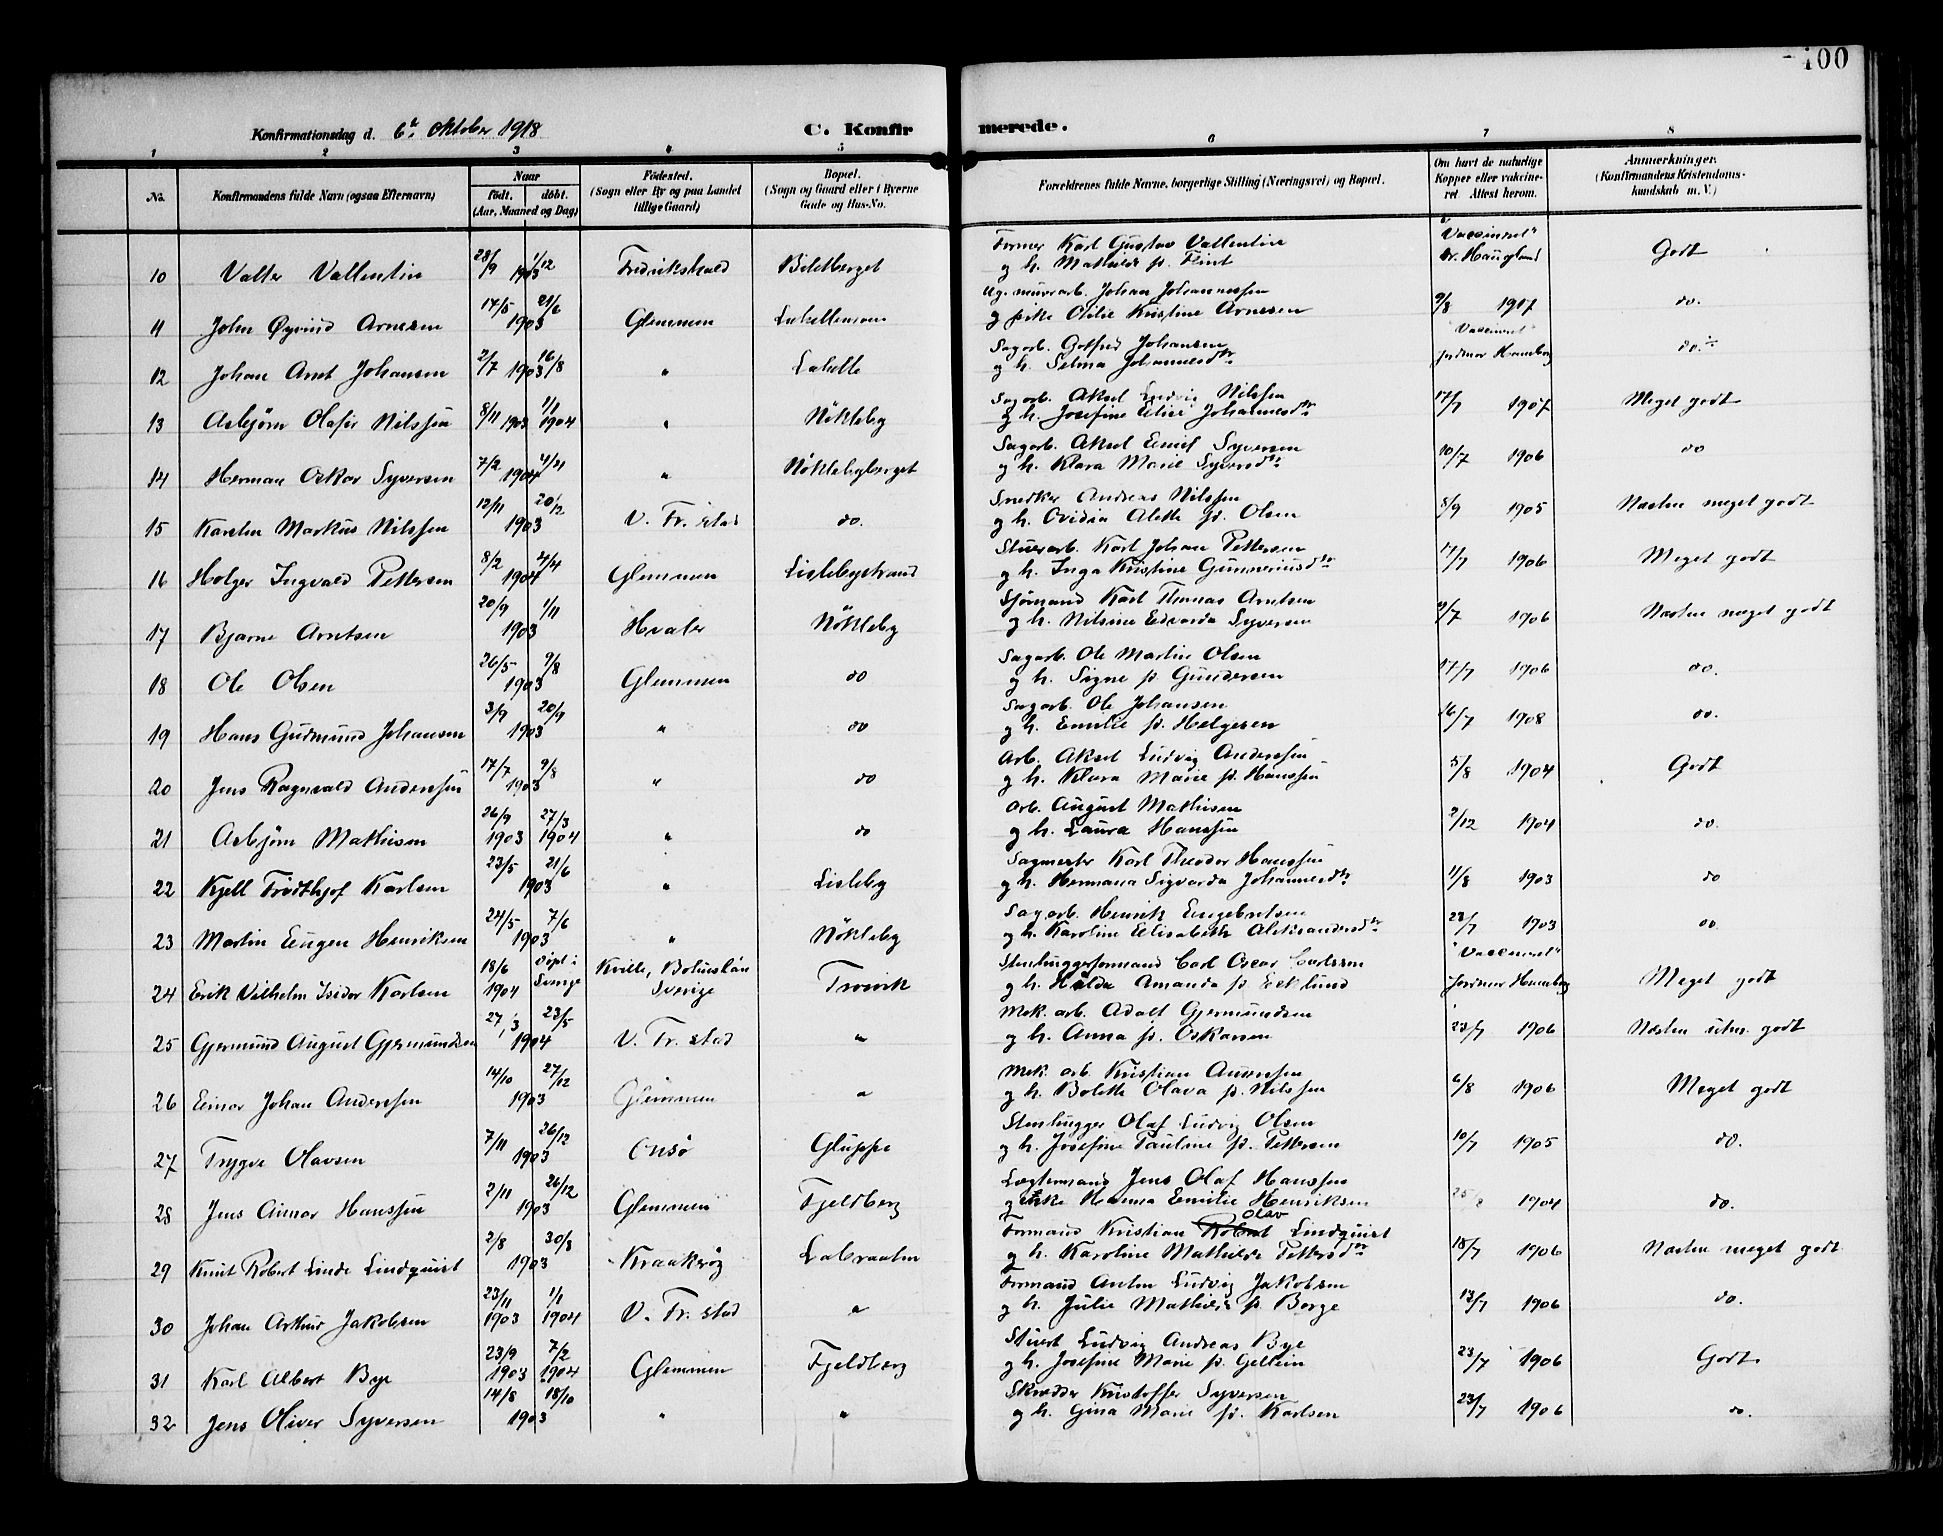 100
Konfirmationsdag d. 6te Oktober 1918 C. Konfirmerede.
1 2 3 4 5 6 7 8
No. Konfirmandens fulde Navn (ogsaa Efternavn) Naar født. døbt. (Aar, Maaned og Dag) Födested. (Sogn eller By og paa Landet tillige Gaard) Bopæl. (Sogn og Gaard eller i Byerne Gade og Hus-No. Forældrenes fulde Navne, borgerlige Stilling (Næringsvei) og Bopæl. Om havt de naturlige Kopper eller vakcineret Attest herom. Anmærkninger. (Konfirmandens Kristendomskundskab m. V.)
10 Valter Vallentin 28/9 1/12 1903 Fredrikshald Bildberget Former Karl Gustav Vallentin "Vaccineret"
g h. Mathilde f. Flint dr. Haugland Godt
11 John Øyvind Arnesen 17/5 21/6 1903 Glemmen Ug. murarb. Johan Johannessen
g pike Otilie Kristine Arnesen 9/8 1907 do.
12 Johan Arnt Johansen 2/7 16/8 1903 " Lahelle Sagarb. Gotfred Johansen "Vaccineret"
g h. Selma Johannesdtr jordmor Hamborg do.
13 Asbjørn Olafir Nilssen 8/11 1903 1/1 1904 " Nökleby Sagarb. Aksel Ludvig Nilssen
g h. Josefine Elise Johannesdtr 17/7 1907 Meget godt
14 Herman Oskar Syversen 7/2 4/4 1904 " Nöklebyberget Sagarb. Aksel Emil Syversen
g h. Klara Marie Syversdtr 10/7 1906 do
15 Karsten Markus Nilssen 12/11 20/12 1903 V. Fr. stad do. Snedker Andreas Nilssen
g h. Ovidia Alette f. Olsen 8/9 1905 Næsten meget godt
16 Holger Ingvald Pettersen 8/2 4/4 1904 Glemmen Lislebystrand Stuerarb. Karl Johan Pettersen
g h. Inga Kristine Gunneriusdtr 17/7 1906 Meget godt
17 Bjarne Arntsen 20/9 1/11 1903 Hvaler Nökleby Sjømand Karl Thomas Arntsen
g h. Nilsine Edvarda Syversen 9/7 1906 Næsten meget godt
18 Ole Olsen 26/5 9/8 1903 Glemmen do Sagarb. Ole Martin Olsen
g h. Signe f. Gundersen 17/7 1906 do.
19 Hans Gudmund Johansen 3/9 20/9 1903 " do Sagarb. Ole Johansen
g h. Emilie f. Helgesen 16/7 1908 do.
20 Jens Ragnvald Anderssen 17/7 9/8 1903 " do Arb. Aksel Ludvig Anderssen
g h. Klara Marie f. Hanssen 5/8 1904 Godt
21 Asbjørn Mathisen 26/9 1903 27/3 1904 " do Arb. August Mathisen
g h. Laura Hanssen 2/12 1904 do.
22 Kjell Fridthjof Karlsen 23/5 21/6 1903 " Lisleby Sagmester Karl Theodor Hanssen
g h. Hermana Sigvarda Johannesdtr 11/8 1903 do
23 Martin Eugen Henriksen 24/5 7/6 1903 " Nökleby Sagarb. Henrik Engebretsen
g h. Karoline Elisabeth Aleksandersdtr 22/7 1903 do.
24 Erik Vilhelm Isidor Karlsen 18/6 1904 døpt i Sverige Kville, Bohuslän Sverige Trosvik Stenhuggerformand Carl Oscar Carlssen "Vaccineret"
g h. Hilda Amanda f. Ecklund jordmor Hamborg Meget godt
25 Gjermund August Gjermundsen 27/3 23/5 1904 V. Fr. stad " Mek. arb. Adolf Gjermundsen
g h. Anna f. Oskarsen 23/7 1906 Næsten utm. godt
26 Einar Johan Anderssen 14/10 27/12 1903 Glemmen " Mek. arb. Kristian Anderssen
g h. Bolette Olava f. Nilssen 6/8 1906 Meget godt
27 Trygve Olavsen 7/11 26/12 1903 Onsö Gluppe Stenhugger Olaf Ludvig Olsen
g h. Josefine Pauline f. Pettersen 10/7 1905 do.
28 Jens Einar Hanssen 2/11 26/12 1903 Glemmen Fjeldberg Lægtemand Jens Olaf Hanssen
g enke Hanna Emilie Henriksen 1904 do.
29 Knut Robert Linde Lindquist 2/8 30/8 1903 Kraakerøy Labraaten Formand Kristian Robert Olav Lindquist
g h. Karoline Mathilde Pettersdtr 18/7 1906 Næsten meget godt
30 Johan Arthur Jakobsen 23/11 1903 1/1 1904 V. Fr. stad " Formand Anton Ludvig Jakobsen
g h. Julie Mathilde f. Borge 12/7 1906 do.
31 Karl Albert Bye 23/9 1903 7/2 1904 Glemmen Fjeldberg Stuert Ludvig Andreas Bye
g h. Josefine Marie f. Gellein 23/7 1906 Godt
32 Jens Oliver Syversen 14/8 18/10 1903 " " Skrædder Kristoffer Syversen
g h. Gina Marie f. Karlsen 23/7 1906 do.